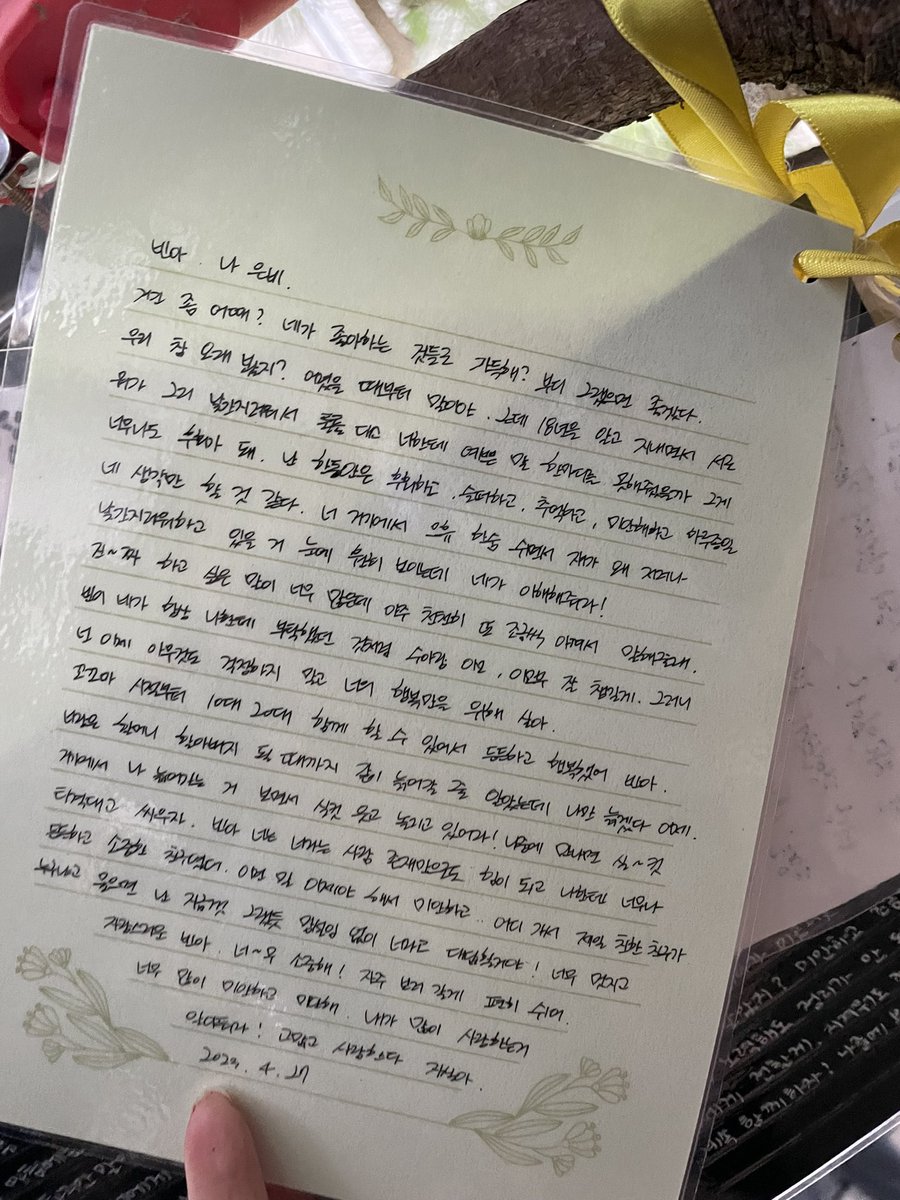 빈아. 나 은비.
거긴 좀 어때? 네가 좋아하는 것들로 가득해? 부디 그랬으면 좋겠다.
우리 참 오래 봤지? 어렸을 때부터 말이야. 그런데 18년을 알고 지내면서 서로
뭐가 그리 낯간지러워서 툴툴 대고 너한테 예쁜 말 한마디를 못해줬을까 그게
너무나도 후회가 돼. 난 한동안은 후회하고, 슬퍼하고, 추억하고, 미안해하고 하루종일
네 생각만 할 것 같다. 너 거기에서 으휴 한숨 쉬면서 쟤가 왜 저러나
낯간지러워하고 있을 거 눈에 훤히 보이는데 네가 이해해줘라!
진~짜 하고 싶은 말이 너무 많은데 아주 천천히 또 조금씩 와서 말해줄래.
빈이 네가 항상 나한테 부탁했던 것처럼 수아랑 이모, 이모부 잘 챙길게. 그러니
넌 이제 아무것도 걱정하지 말고 너의 행복만을 위해 살아.
꼬꼬마 시절부터 10대 20대 함께 할 수 있어서 든든하고 행복했어 빈아.
너랑은 할머니 할아버지 될 때까지 같이 늙어갈 줄 알았는데 나만 늙겠다 이제.
게에서 나 늙어가는 거 보면서 실컷 웃고 놀리고 있어라! 나중에 만나면 실~컷
티격대고 싸우자. 빈아 너는 너라는 사람 존재만으로도 힘이 되고 나한테 너무나
든든하고 소중한 친구였다. 이런 말 이제야 해서 미안하고.. 어디 가서 제일 친한 친구가
누구냐고 물으면 난 지금껏 그랬듯 망설임 없이 너라고 대답할거야! 너무 멋지고
자랑스러운 빈아. 너~무 소중해! 자주 보러 갈게 편히 쉬어.
너무 많이 미안하고 미안해. 내가 많이 사랑하는거
알지! 고맙고 사랑한다 자식아.
2023. 4. 27